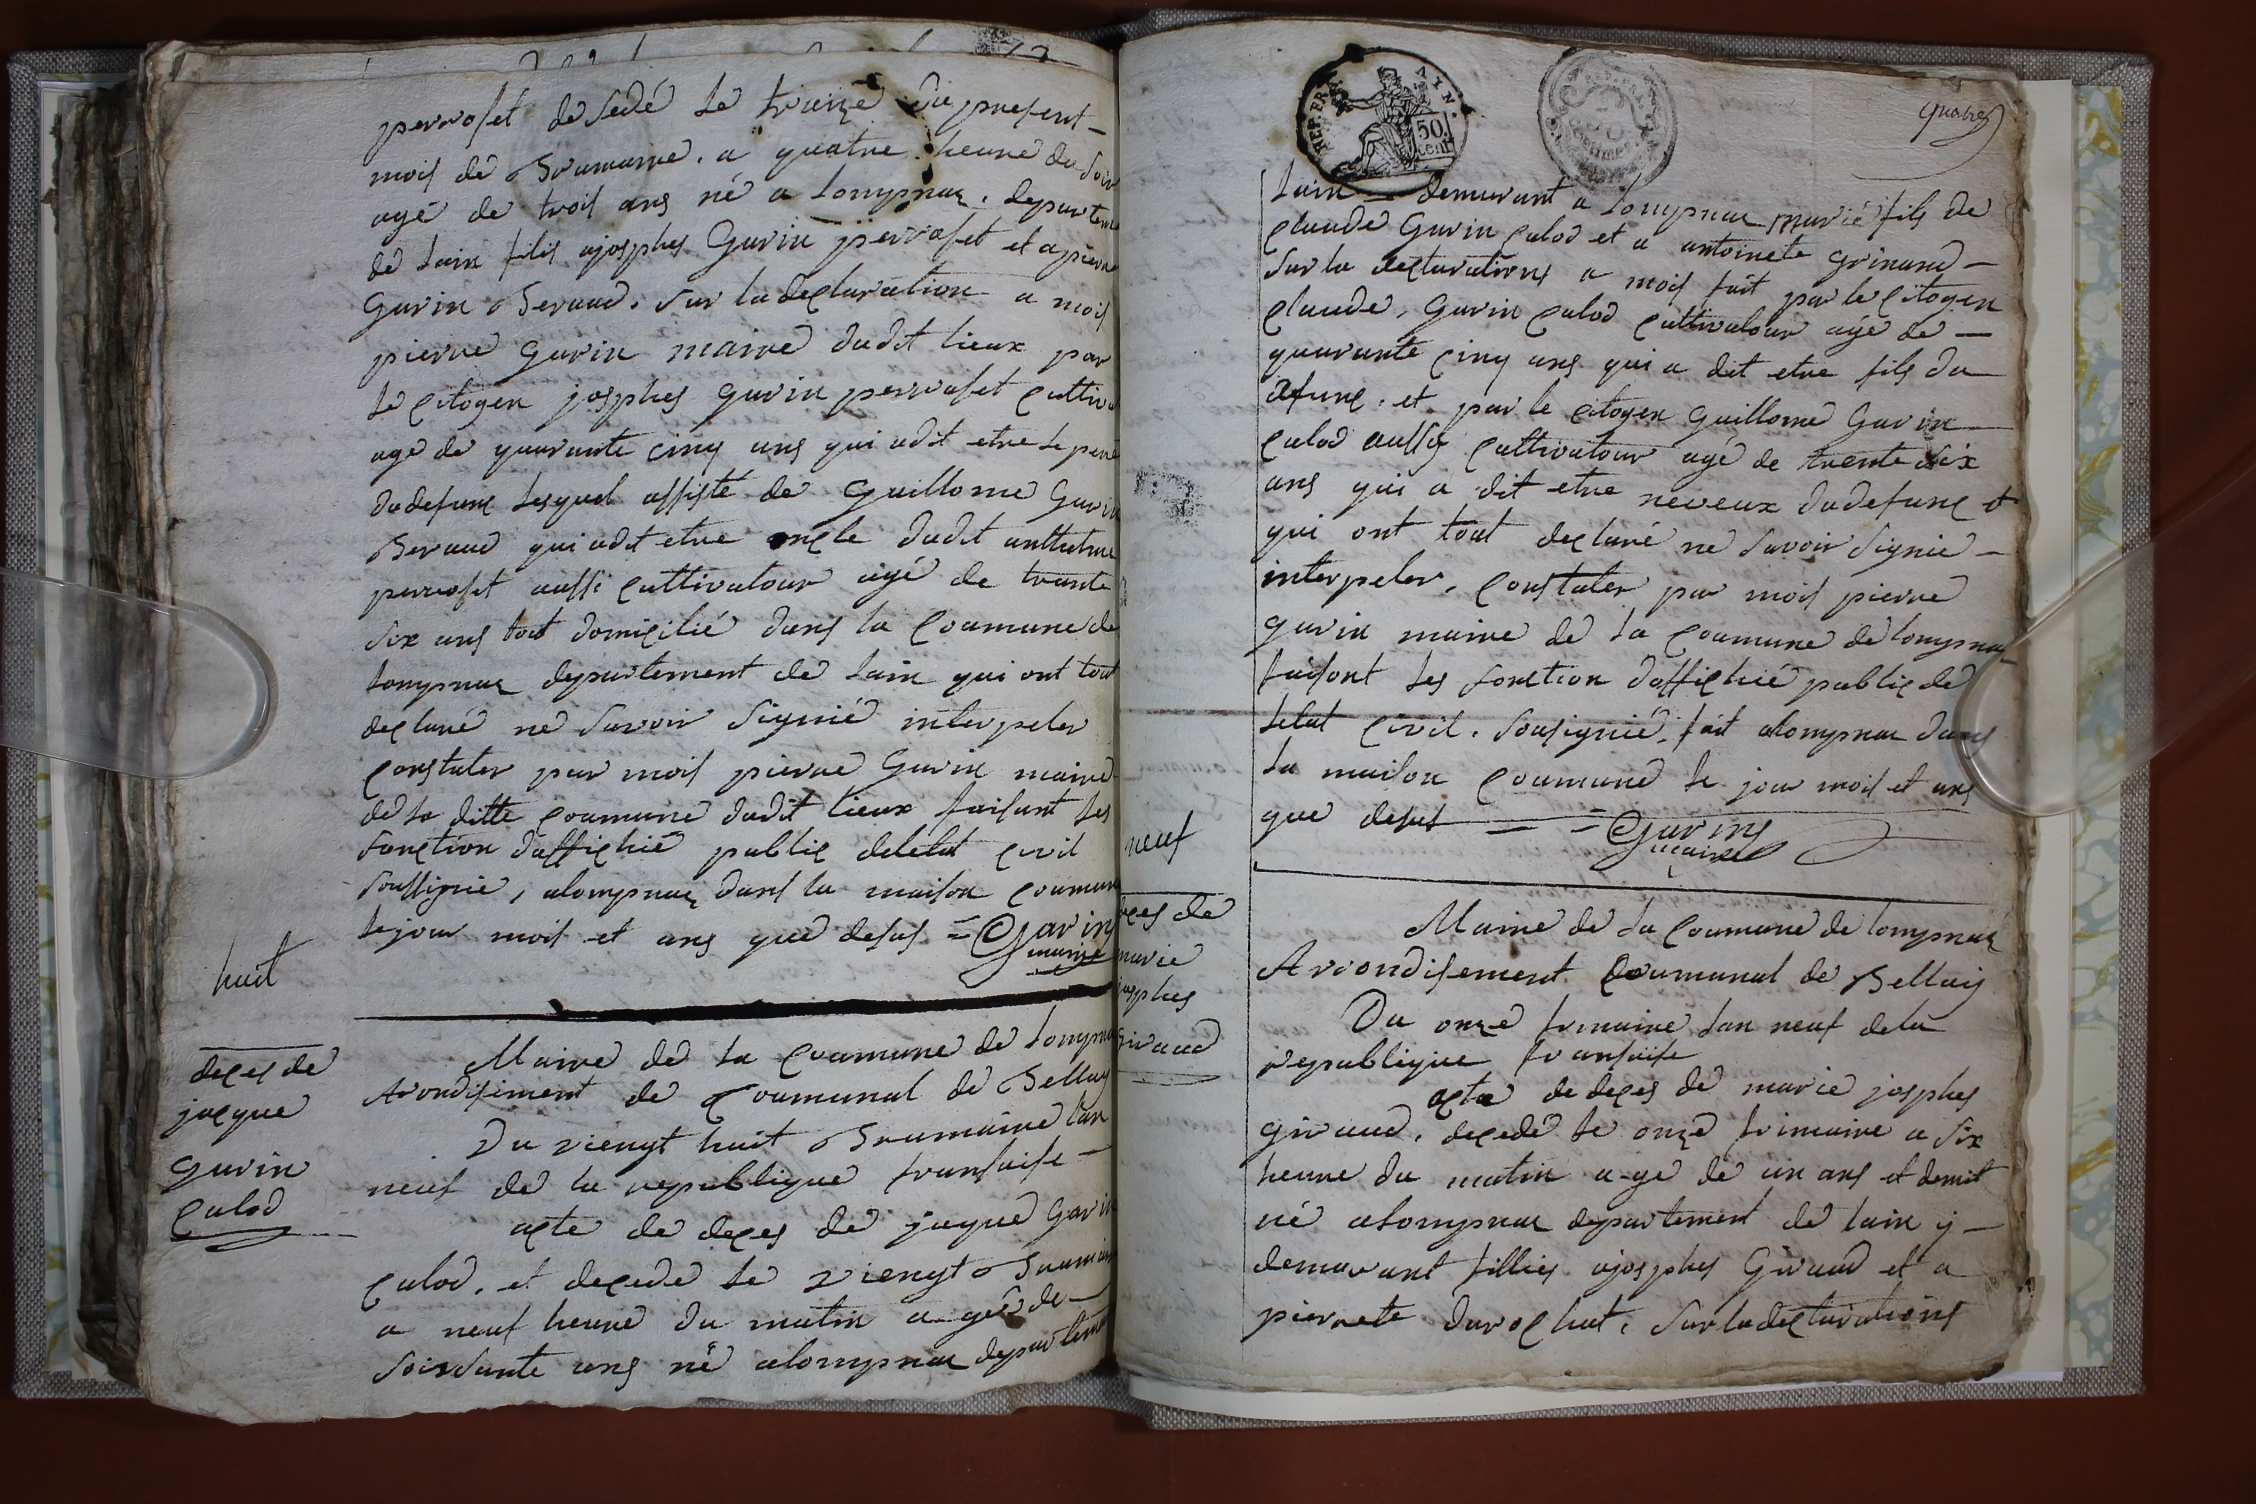 perroset de sedé le treize du present
mois de Brumaire. a quatre heure du soir
agé de trois ans né a lompnaz. departeme
de lain filis ajosphes Gavin perroset et apierre
Gavin Beraud. sur la declaration a mois
pierre gavin maire dudit lieux par
le citogen josphes gavin perroset cultiv
age de quarante cinq ans qui adit etre le pere
du defunc lesquel assisté de guillome Gavin
Beraud qui adit etre oncle dudit
perroset aussi cultivatour agé de trante
six ans tout domicilié dans la coumune de
lompnaz departement de lain qui ont tout
declaré ne savoir signié interpeler
constater par mois pierre Gavin maire
de la ditte coumune dudit lieux faisant les
fonction daffichié public deletat civil
soussignie, alompnaz dans la maison coumune
le jour mois et ans que desus = Gavin
maire
huit
deces de
jacque
gavin
calod
Maire de la coumune de lompna
Arondisement de coumunal de Bellay
Du viengt huit Brumaire lan
neuf de la republique fransaise
acte de deces de jaque Gavin
calod. et decede le viengt Brumaire
a neuf heure du matin a gée de
soissante ans né alompnaz departement
quatre
REP. FRA. AYN.
50 cent
lain demurant a lompnaz marié fils de
claude Gavin calod et a antoinete grinand
sur la declarations a mois fait par le citogen
claude, gavin calod cultivatour agé de
quarante cinq ans qui a dit etre fils du
defunc. et par le citogen guillome Gavin
calod aussy cultivatour agé de trente six
ans qui a dit etre neveux du defunc et
qui ont tout declaré ne savoir signie
interpeler. constater par mois pierre
gavin maire de la coumune de lompnaz
faisont les fonction daffichié public de
letat civil. sousignié. fait alompnaz dans
la maison coumune le jour mois et ans
que desus = = Gavin
maire
neuf
deces de
marie
josphes
Giraud
Maire de la coumune de lompnaz
Arrondisement Coumunal de Bellaij
Du onze frimaire lan neuf dela
republique fransaise
acte de deces de marie josphes
giraud. decedé le onze frimaire a six
heure du matin a-gé de un ans et demit
né alompnaz departement de lain ij
demurant fillies ajosphes Giraud et a
pierrete durochat. sur la declarations